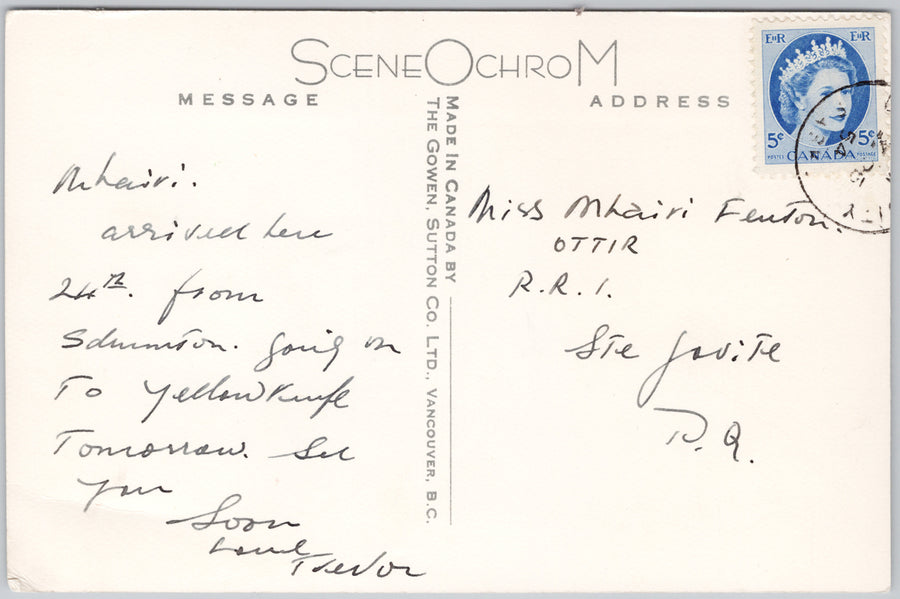 SCENEOCHROM
MESSAGE
ADDRESS
EIIR EIIR
5¢ 5¢
POSTES CANADA POSTAGE
MADE IN CANADA BY
THE GOWEN, SUTTON CO. LTD., VANCOUVER, B.C.
Mhairi.
arrived here
24th. from
Edmonton. Going on
To Yellowknife
Tomorrow. See
you
Soon
Love
Trevor
Miss Mhairi Fenton.
OTTIR
R.R.1.
Ste Jovite
P.Q.